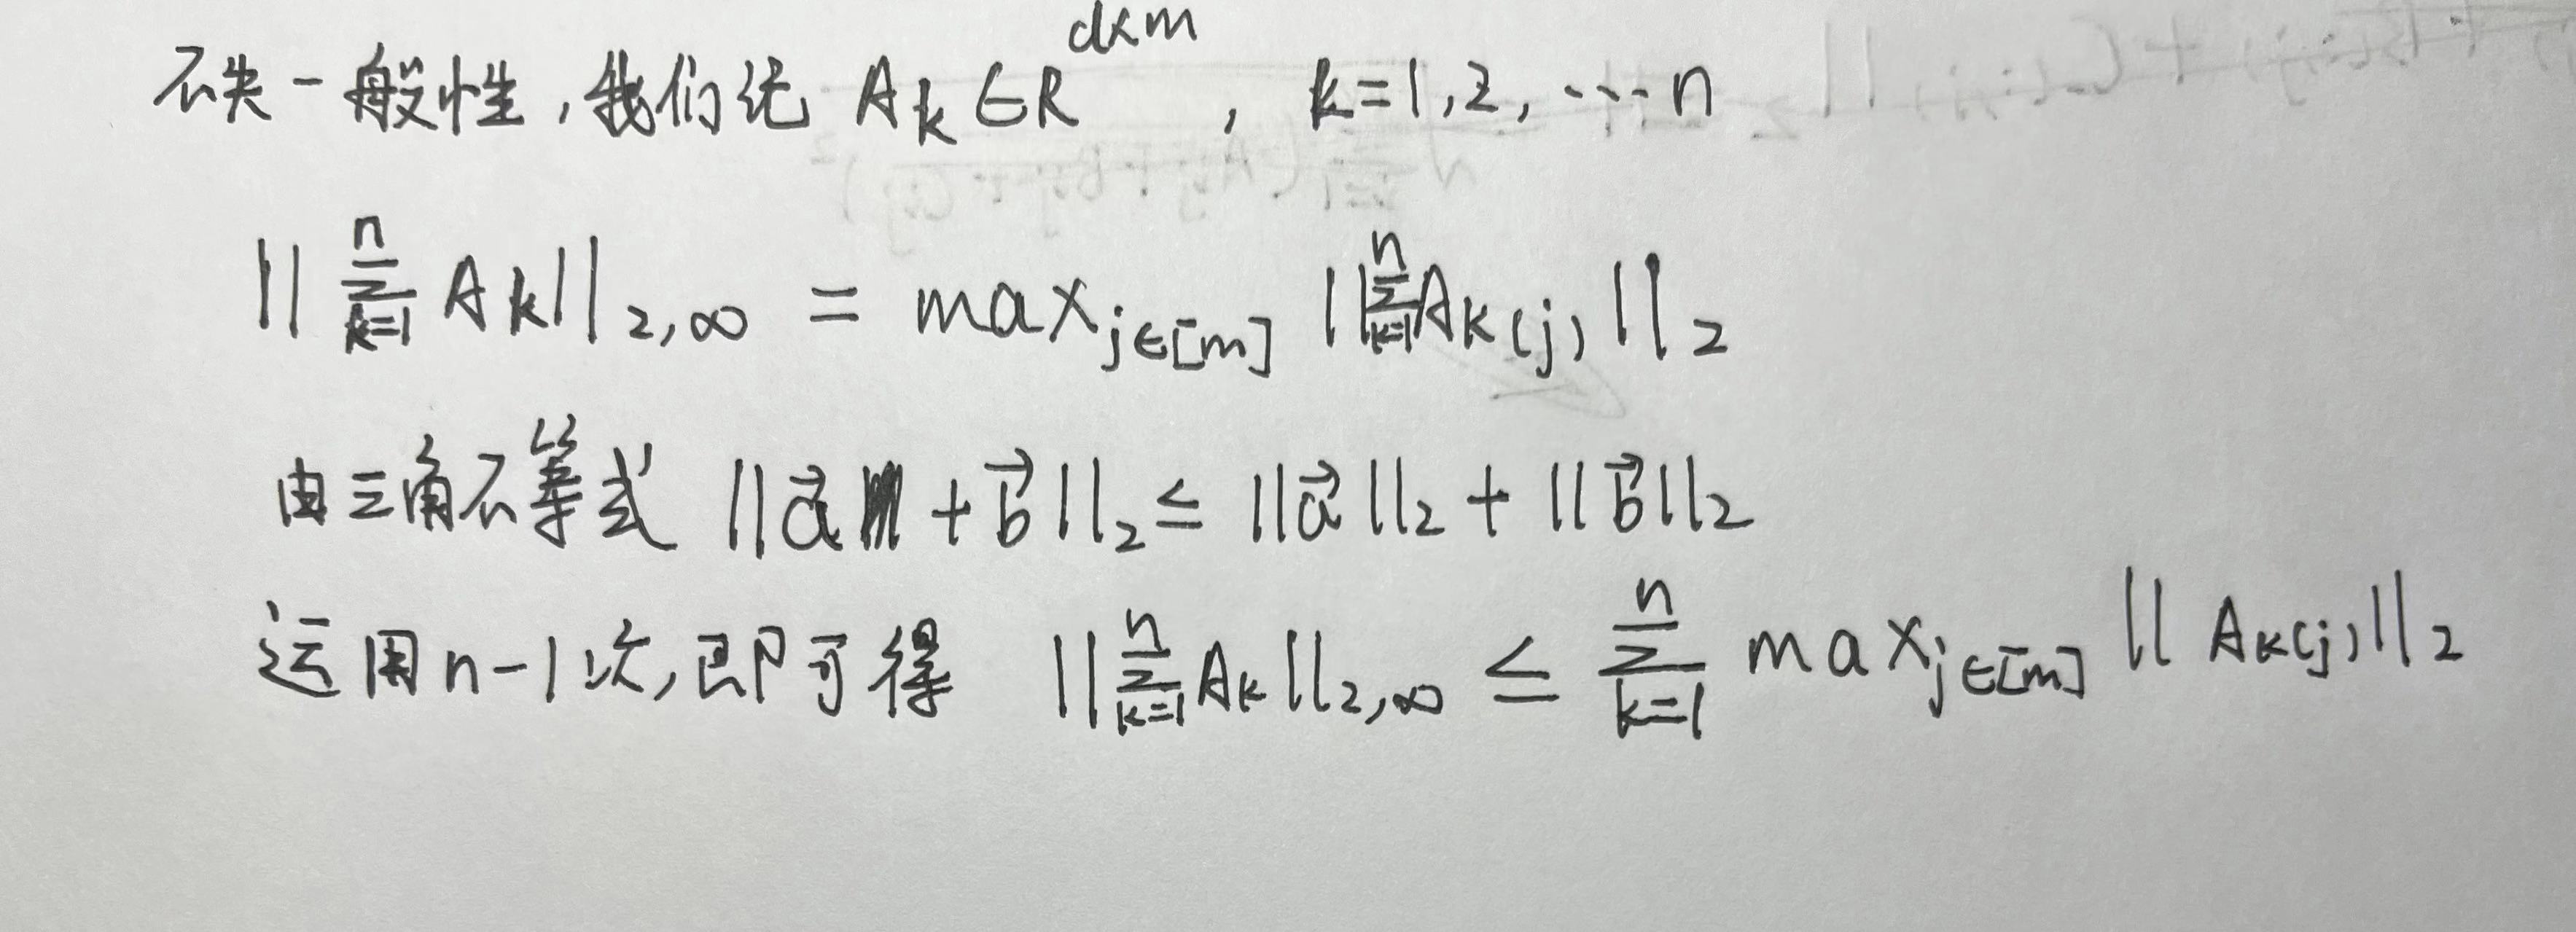 不失一般性,我们记 A_k ∈ R^{d×m}, k=1,2,…n
||∑_{k=1}^{n} A_k||_{2,∞} = max_{j∈[m]} ||∑_{k=1}^{n} A_{k(j)}||_2
由三角不等式 ||\vec{a} + \vec{b}||_2 ≤ ||\vec{a}||_2 + ||\vec{b}||_2
运用n-1次,即可得 ||∑_{k=1}^{n} A_k||_{2,∞} ≤ ∑_{k=1}^{n} max_{j∈[m]} ||A_{k(j)}||_2